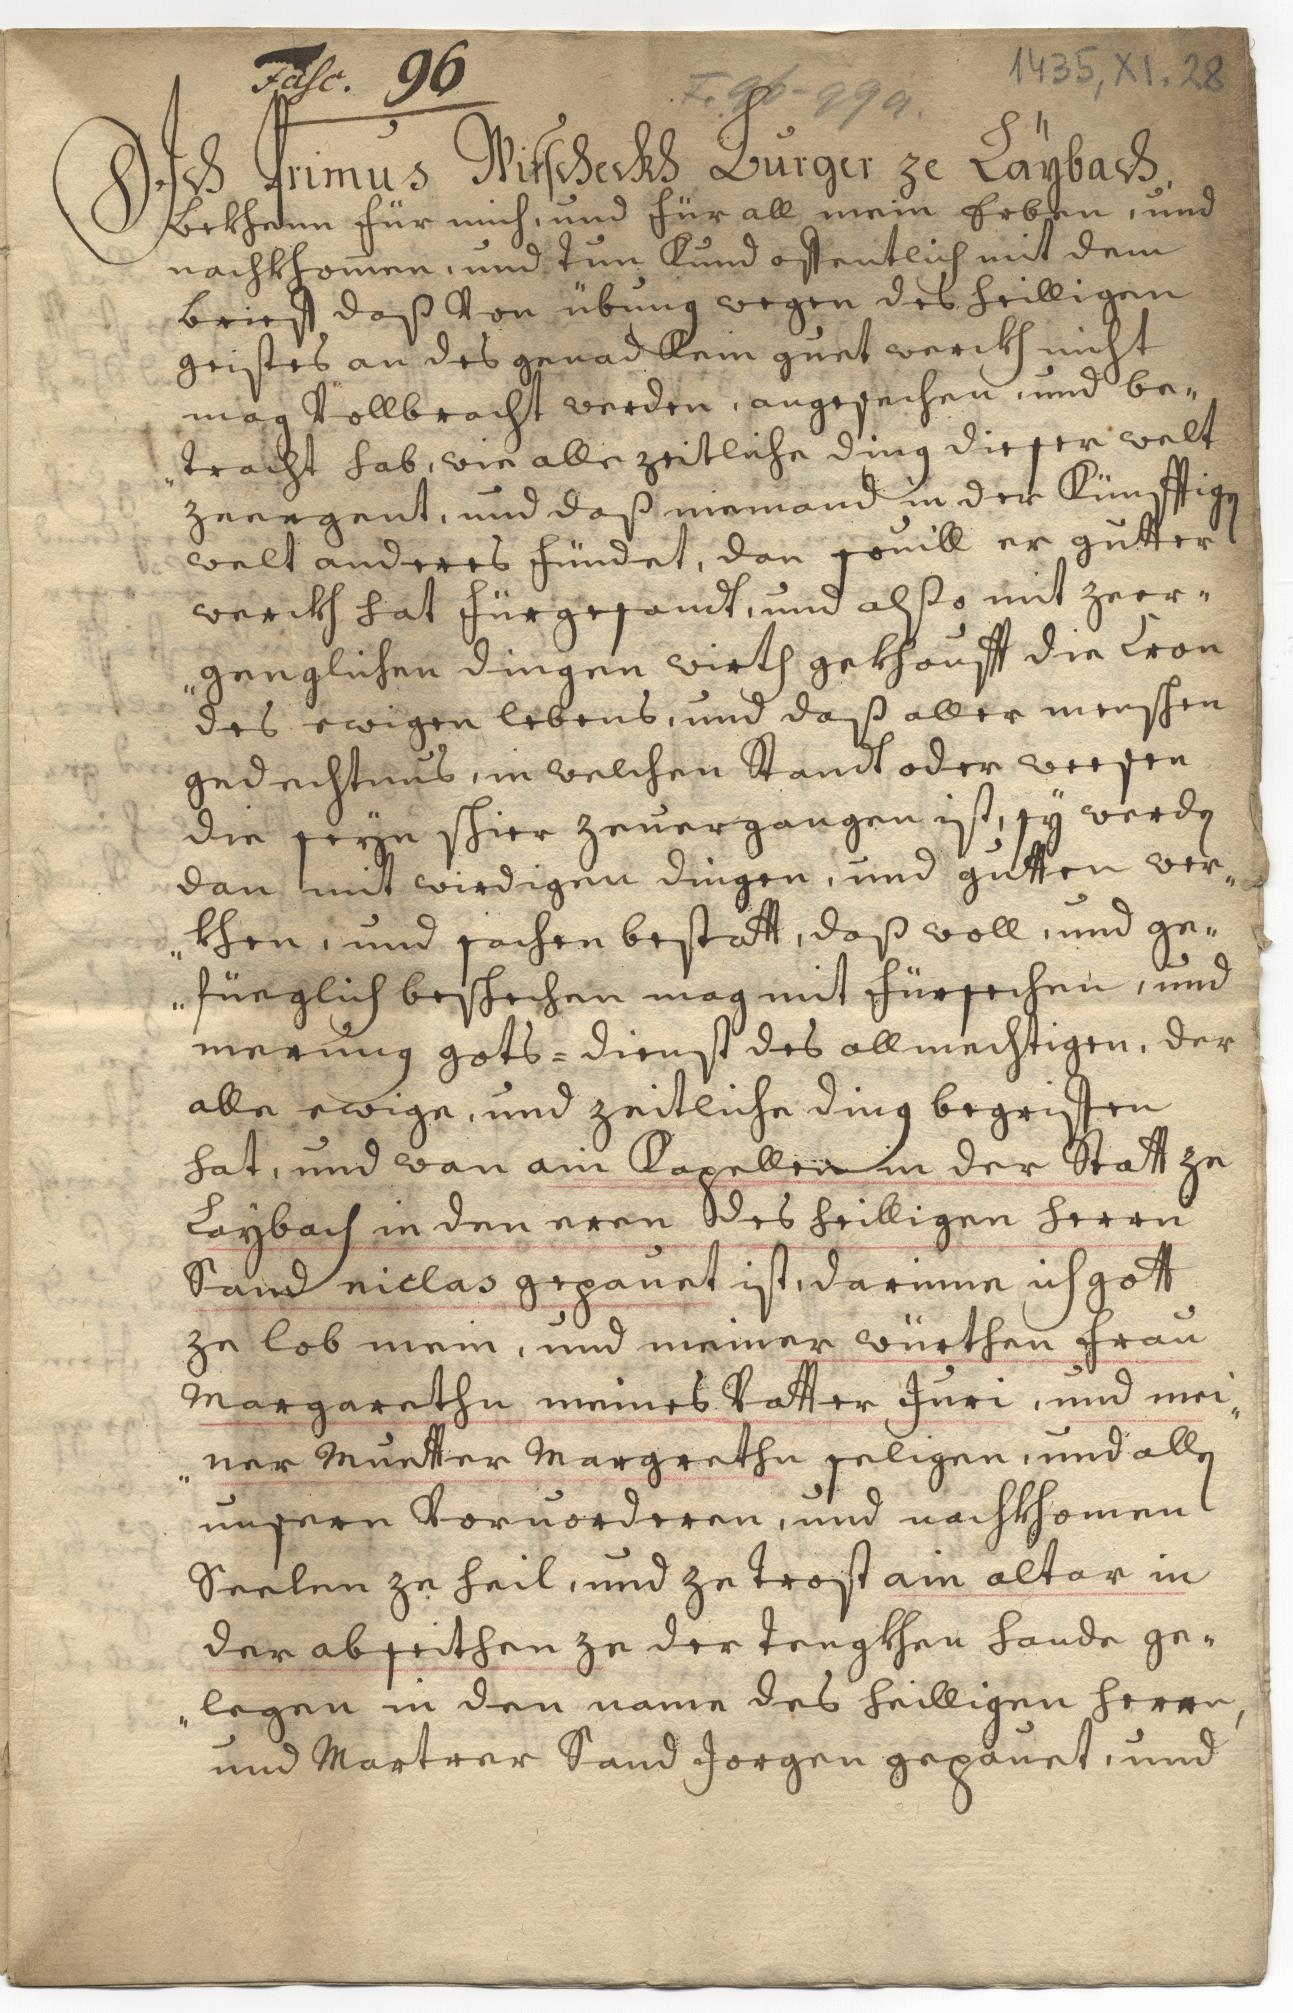 Fasc. 96
F. 96-99a.
1435, XI. 28
Ich Primus Burger ze Laÿbach,
Bekhenn für mich, und für all mein Erben, und
nachkhomen, und tun Kund offentlich mit dem
brieff daß Von übung wegen des heilligen
geistes an des genad Kein guet werckh nicht
mag Vollbracht werden, angesechen, und be-
„tracht hab, wie alle zeitliche ding dieser welt
zeergent, und daß niemand in der Künfftigen
welt anderes fündet, dan souill er gutter
werckh hat fürgesandt, und alßo mit zeer-
„genglichen dingen wirth gekhaufft die Cron
des ewigen lebens, und daß aller menschen
gedechtnus, in welchen Standt oder weesen
die seÿn schier zeuergangen ist, sÿ werden
dan mit wirdigen dingen, und gutten wer-
„khen, und sachen bestätt, daß woll, und ge-
„füeglich beschechen mag mit fürsechen, und
merung gots=dienst des allmechtigen, der
alle ewige, und zeitliche ding begriffen
hat, und wan ain Kapellen in der Statt ze
Laybach in den eren des heilligen herrn
Sand niclas gepauet ist, darinne ich gott
ze lob mein, und meiner würthen frau
Margarethn meines Vatter Juri, und mei-
„ner Muetter Margrethn seligen, und allen
unsern Voruorderen, und nachkhomen
Seelen ze heil, und ze trost ain altar in
der abseithen ze der tengkhen hande ge-
„legen in den name des heilligen herrn,
und Martrer Sand Jorgen gepauet, und